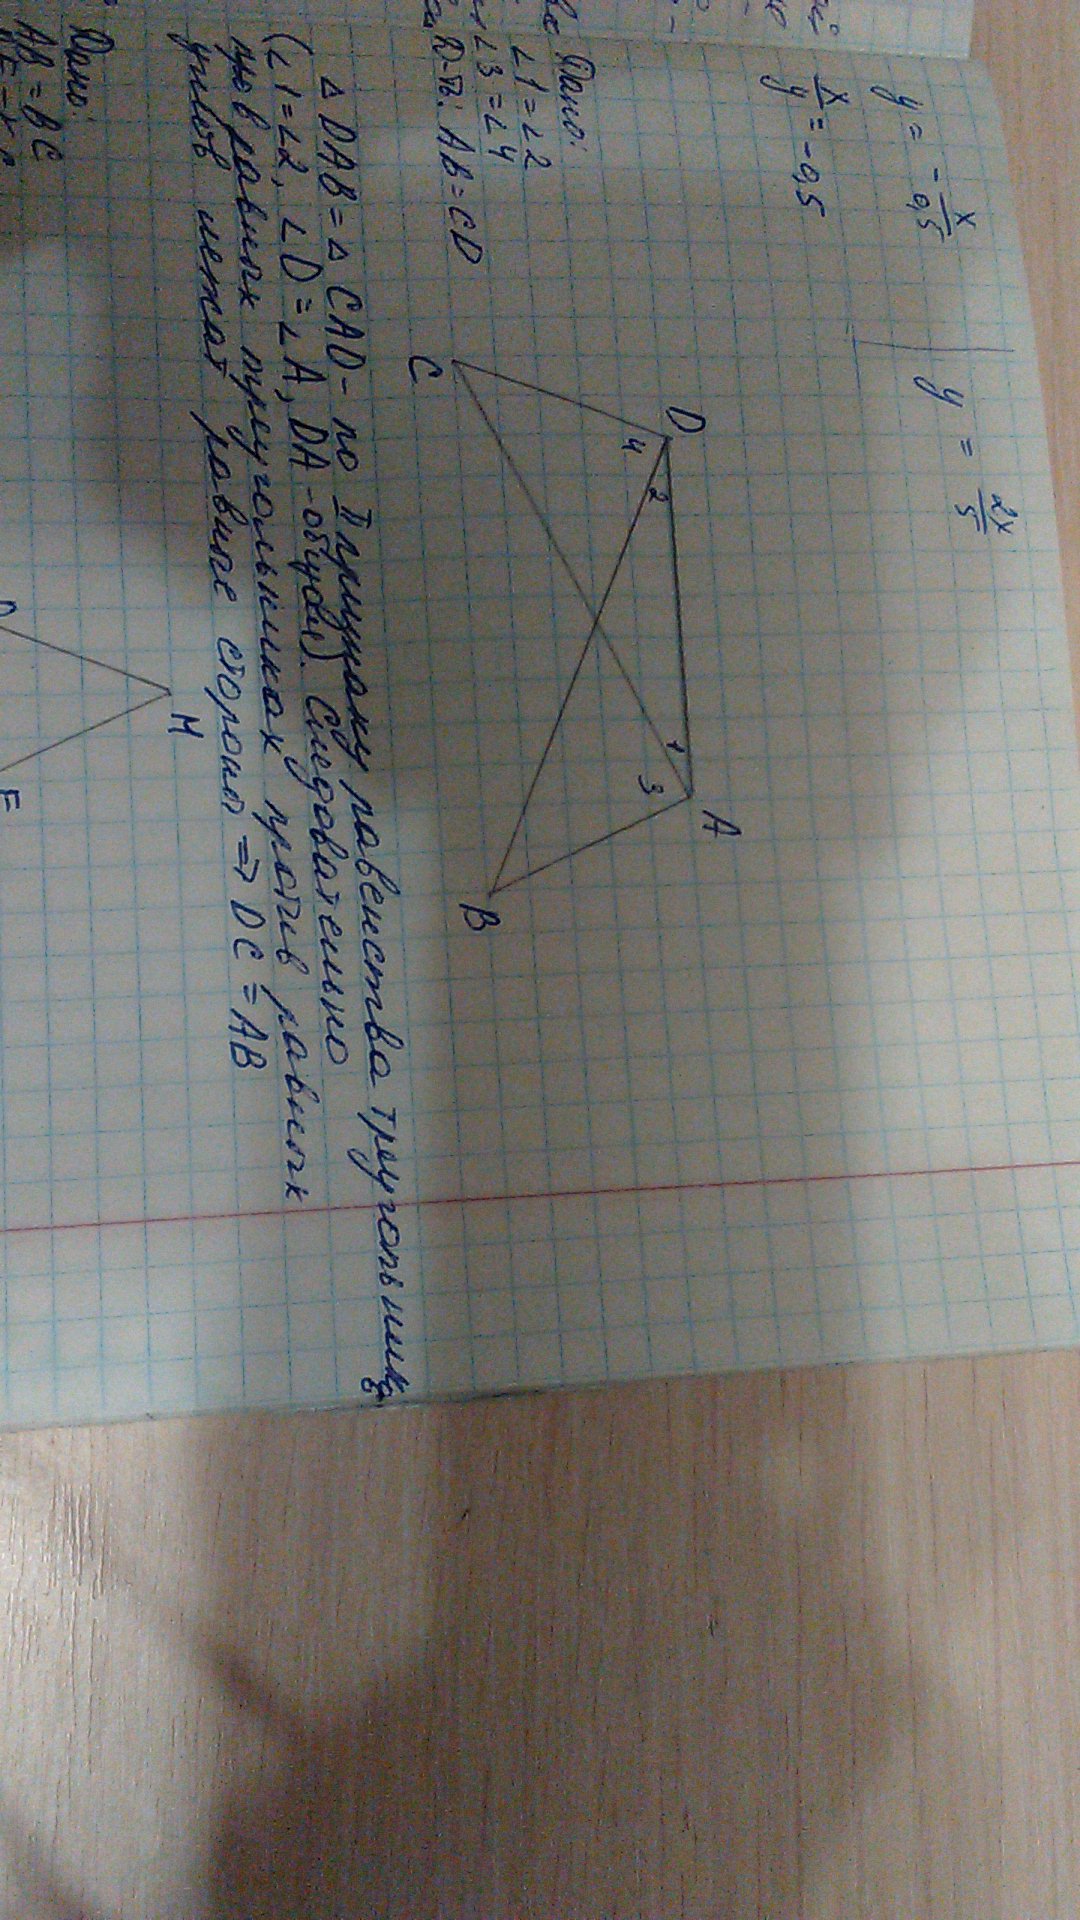 y = -x/0,5
y = 2x/5
x/y = -0,5
Дано:
∠1 = ∠2
∠3 = ∠4
Д-ть: AB = CD
D
A
2
1
4
3
C
B
△ DAB = △ CAD - по II признаку равенства треугольника
(∠1 = ∠2, ∠D = ∠A, DA - общая). Следовательно
в равных треугольниках против равных
углов лежат равные стороны ⇒ DC = AB
M
F
Дано:
AB = BC